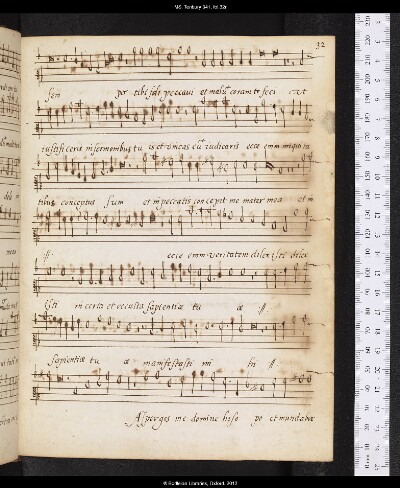 MS. Tenbury 341, fol.32r
32
sem per tibi soli peccavi et malū coram te feci ut
iustificeris in sermonibus tu is et vincas cū iudicaris ecce enim in iniqui ta
tibus conceptus sum et in peccatis concepit me mater mea et in
ij. ecce enim veritatem dilexisti dilex
isti incerta et occulta sapientiæ tu æ ij
sapientiæ tu æ manifestasti mi hi ij
Asperges me domine hiso po et mundabor
© Bodleian Libraries, Oxford, 2012